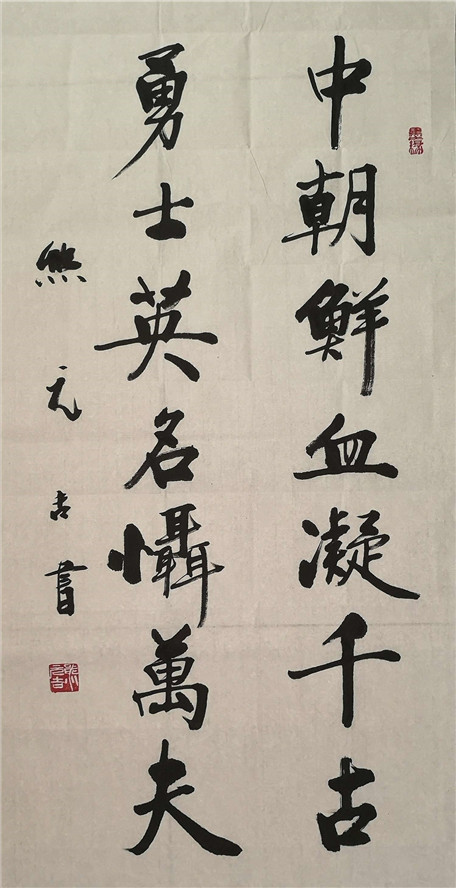 中朝鮮血凝千古
勇士英名懾萬夫
熊元吉書